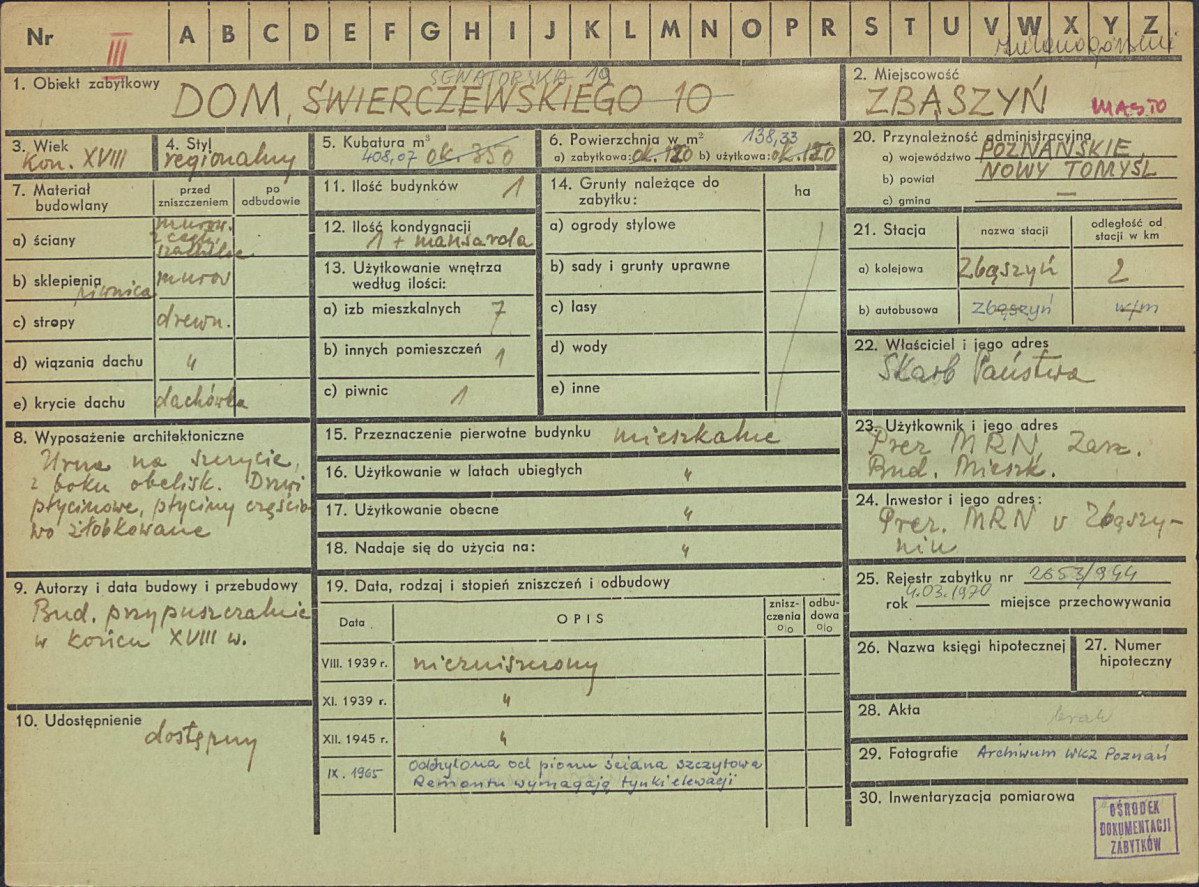 Nr III A B C D E F G H I J K L M N O P R S T U V W X Y Z
zielonogórskie
1. Obiekt zabytkowy
SENATORSKA 19
DOM, ŚWIERCZEWSKIEGO 10
2. Miejscowość
ZBĄSZYŃ MIASTO
3. Wiek
kon. XVIII
4. Styl
regionalny
5. Kubatura m³
408,07 ok. 350
6. Powierzchnia w m² 138,33
a) zabytkowa: ok. 120 b) użytkowa: ok. 120
20. Przynależność administracyjna
a) województwo POZNAŃSKIE,
b) powiat NOWY TOMYŚL
c) gmina —
7. Materiał budowlany
przed zniszczeniem
po odbudowie
a) ściany murow. z cegły, szachulec
b) sklepienia piwnica murow
c) stropy drewn.
d) wiązania dachu "
e) krycie dachu dachówka
11. Ilość budynków 1
12. Ilość kondygnacji
1 + mansarda
13. Użytkowanie wnętrza
według ilości:
a) izb mieszkalnych 7
b) innych pomieszczeń 1
c) piwnic 1
14. Grunty należące do
zabytku:
ha
a) ogrody stylowe
b) sady i grunty uprawne
c) lasy
d) wody
e) inne
21. Stacja
nazwa stacji
odległość od
stacji w km
a) kolejowa Zbąszyń 2
b) autobusowa Zbąszyń w/m
22. Właściciel i jego adres
Skarb Państwa
8. Wyposażenie architektoniczne
Urna na szczycie,
z boku obelisk. Drzwi
płycinowe, płyciny częścio-
wo żłobkowane
15. Przeznaczenie pierwotne budynku mieszkalne
16. Użytkowanie w latach ubiegłych "
17. Użytkowanie obecne "
18. Nadaje się do użycia na: "
23. Użytkownik i jego adres
Prez MRN, Zarz.
Bud. Mieszk.
24. Inwestor i jego adres:
Prez. MRN w Zbąszy-
niu
9. Autorzy i data budowy i przebudowy
Bud. przypuszczalnie
w końcu XVIII w.
10. Udostępnienie
dostępny
19. Data, rodzaj i stopień zniszczeń i odbudowy
Data
OPIS
znisz-
czenia
%
odbu-
dowa
%
VIII. 1939 r. niezniszczony
XI. 1939 r. "
XII. 1945 r. "
IX. 1965 odchylona od pionu ściana szczytowa
Remontu wymagają tynki elewacji
25. Rejestr zabytku nr 2653/944
4.03.1970
rok miejsce przechowywania
26. Nazwa księgi hipotecznej
27. Numer
hipoteczny
28. Akta brak
29. Fotografie Archiwum WKZ Poznań
30. Inwentaryzacja pomiarowa
OŚRODEK
DOKUMENTACJI
ZABYTKÓW